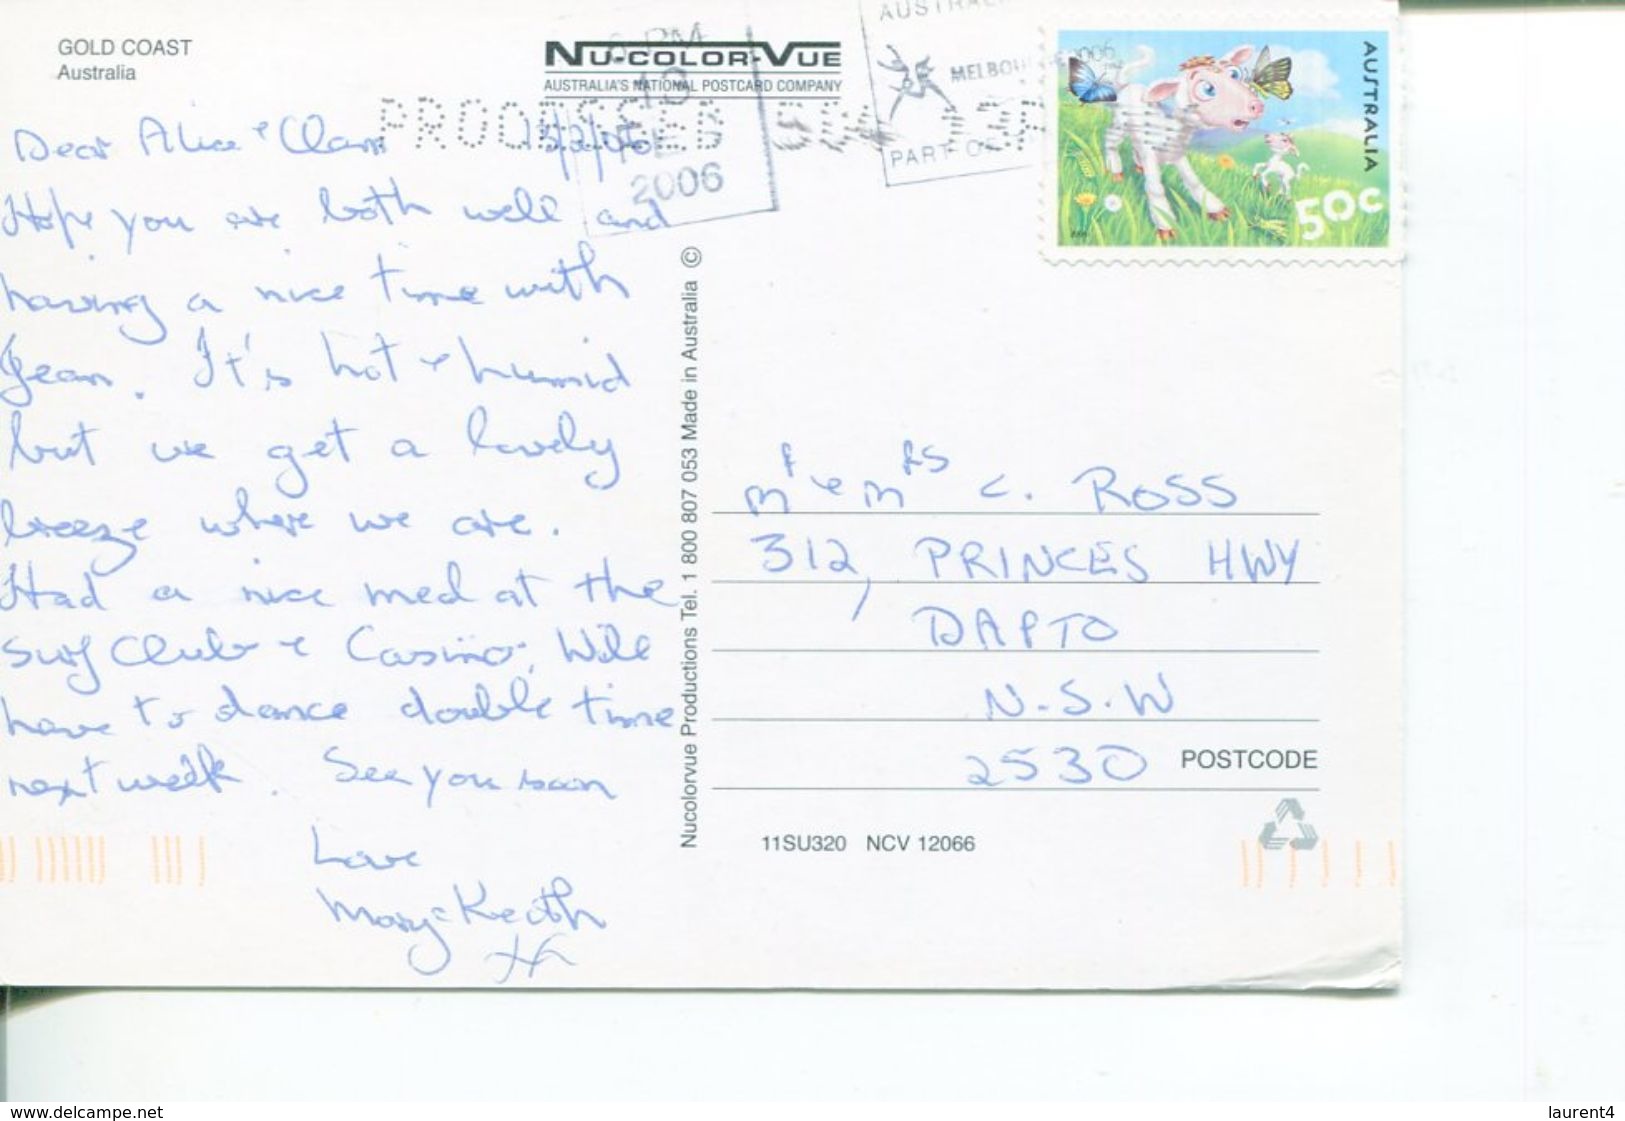 GOLD COAST
Australia
NU-COLOR-VUE
AUSTRALIA'S NATIONAL POSTCARD COMPANY
PROCESSED
2006
MELBOURNE 2006
PART OF
AUSTRALIA
50c
Dear Alice & Clarrie 13/2/06
Hope you are both well and
having a nice time with
Jean. It's hot & humid
but we get a lovely
breeze where we are.
Had a nice meal at the
Surf Club & Casino. Will
have to dance double time
next week. See you soon
Love
Mary & Keith
Nucolorvue Productions Tel. 1 800 807 053 Made in Australia ©
Mr & Mrs C. ROSS
312, PRINCES HWY
DAPTO
N.S.W
2530 POSTCODE
11SU320 NCV 12066
www.delcampe.net
laurent4